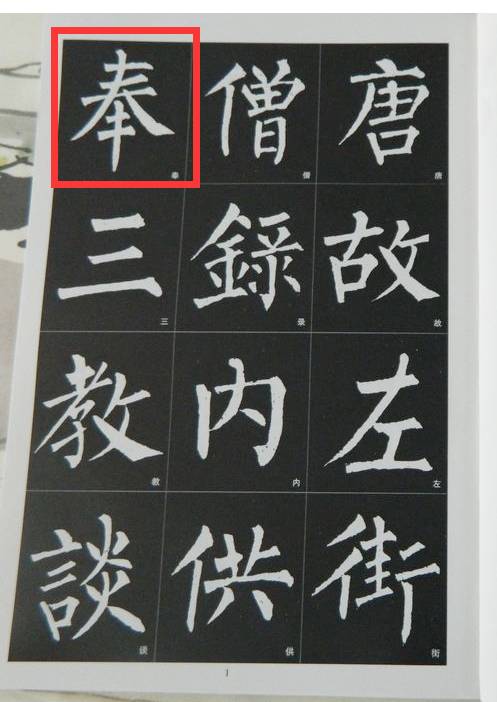 唐故左街
唐故左街
僧錄内供
僧录内供
奉三教談
奉三教谈
1